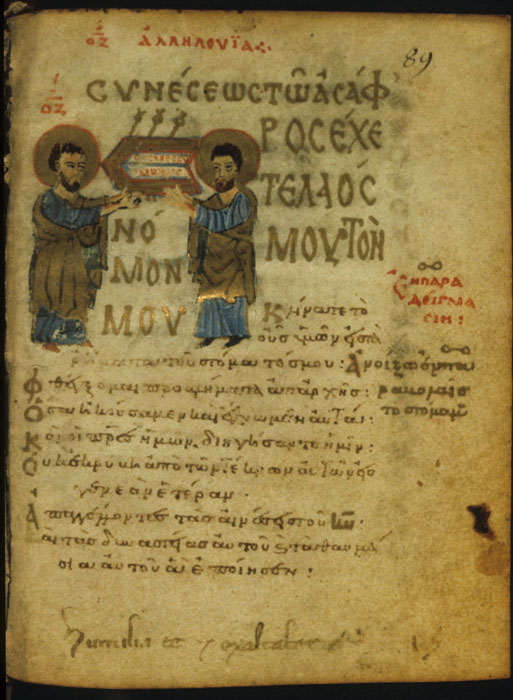 οζ ἀλληλούϊα
89
οζ
συνέσεωσ τῶ ἀσάφ
Ρ Ο Σ Ε Χ Ε
ΤΕ ΛΑΟΣ
ΜΟΥ ΤΟΝ
ΝΟ
ΜΟΝ
ΜΟΥ
Κλίνατε τὸ
οὖσ ὑμῶν εἰσ τὰ
ῥήματα τοῦ στόματόσ μου: Ἀνοίξω ἐν παραβολαῖσ τὸ στόμα μου
Φθέγξομαι προβλήματα ἀπ' ἀρχῆσ:
Ὅσα ἠκούσαμεν καὶ ἔγνωμεν αὐτά:
Κ οἱ πρεσ ἡμῶν διηγήσαντο ἡμῖν:
Οὐκ ἐκρύβη ἀπὸ τῶν τέκνων αὐτῶν εἰσ
γενεὰν ἑτέραν
Ἀπαγγέλλοντεσ τὰσ αἰνέσεισ τοῦ κυ
καὶ τὰσ δυναστείασ αὐτοῦ καὶ τὰ θαυμά
σια αὐτοῦ ἃ ἐποίησεν: